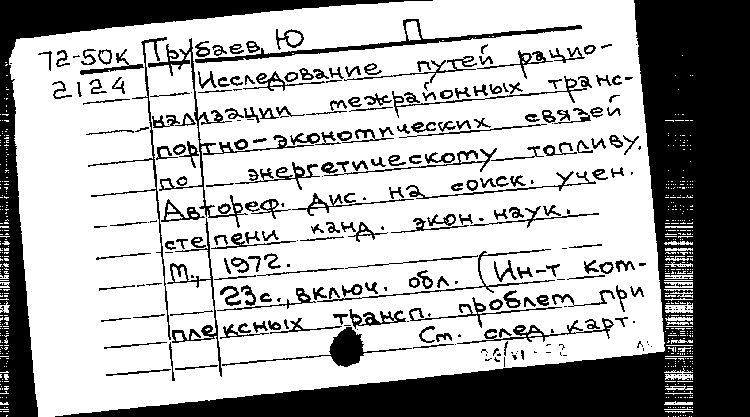 72-50к Трубаев, Ю П
2124 Исследование путей рацио-
нализации межрайонных транс-
портно-экономических связей
по энергетическому топливу.
Автореф. дис. на соиск. учен.
степени канд. экон. наук.
М., 1972.
23с., включ. обл. (Ин-т ком-
плексных трансп. проблем при
См. след. карт.